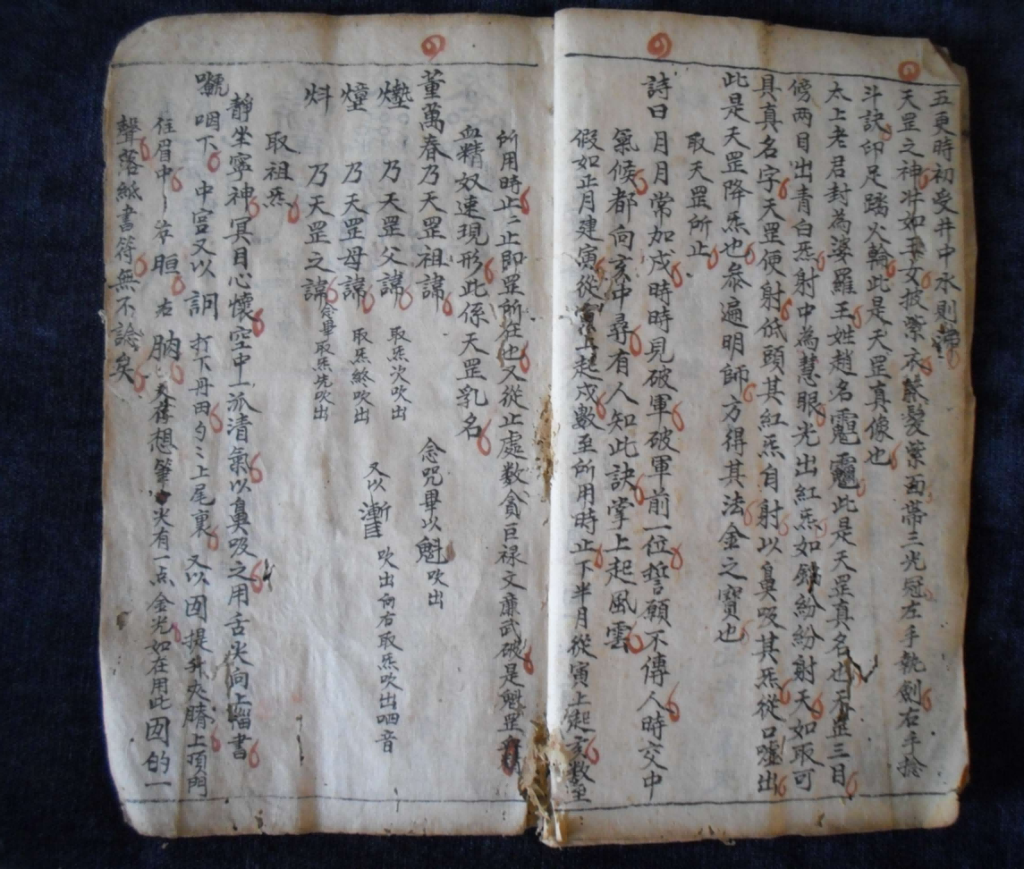 五更時初受井中水則
天罡之神狀如玉女披紫衣鬅髮蒙面帶三光冠左手執劍右手捻
斗訣印足踏火輪此是天罡真像也
太上老君封為婆羅王姓趙名此是天罡真名也天罡三目
傍兩目出青白炁射中為慧眼光出紅炁如錦紛紛射天如取可
具真名字天罡便射低頭其紅炁自射以鼻吸其炁從口噓出
此是天罡降炁也叅遍明師方得其法金之寶也
取天罡所止
詩曰月月常加戍時時見破軍破軍前一位誓願不傳人時交中
氣候都向亥中尋有人知此訣掌上起風雲
假如正月建寅從上起戍數至所用時止下半月從寅上起亥數至
所用時止二止即罡所在也又從止處数貪巨禄文廉武破是魁罡
血精奴速現形此係天罡乳名
董萬春乃天罡祖諱 念咒畢以魁吹出
乃天罡父諱 取炁次吹出 又以 吹出向右取炁吹出呬音
乃天罡母諱 取炁終吹出
炓 乃天罡之諱 念畢取炁先吹出
取祖炁
靜坐寧神冥目心懷空中一派清氣以鼻吸之用舌尖向上腭書
咽下中宮又以 打下丹田的々上尾裏又以囡提升夾臍上頂門
往眉中 左 右 又存想筆尖有一点金光如在用此 的一
聲落紙書符無不諗矣